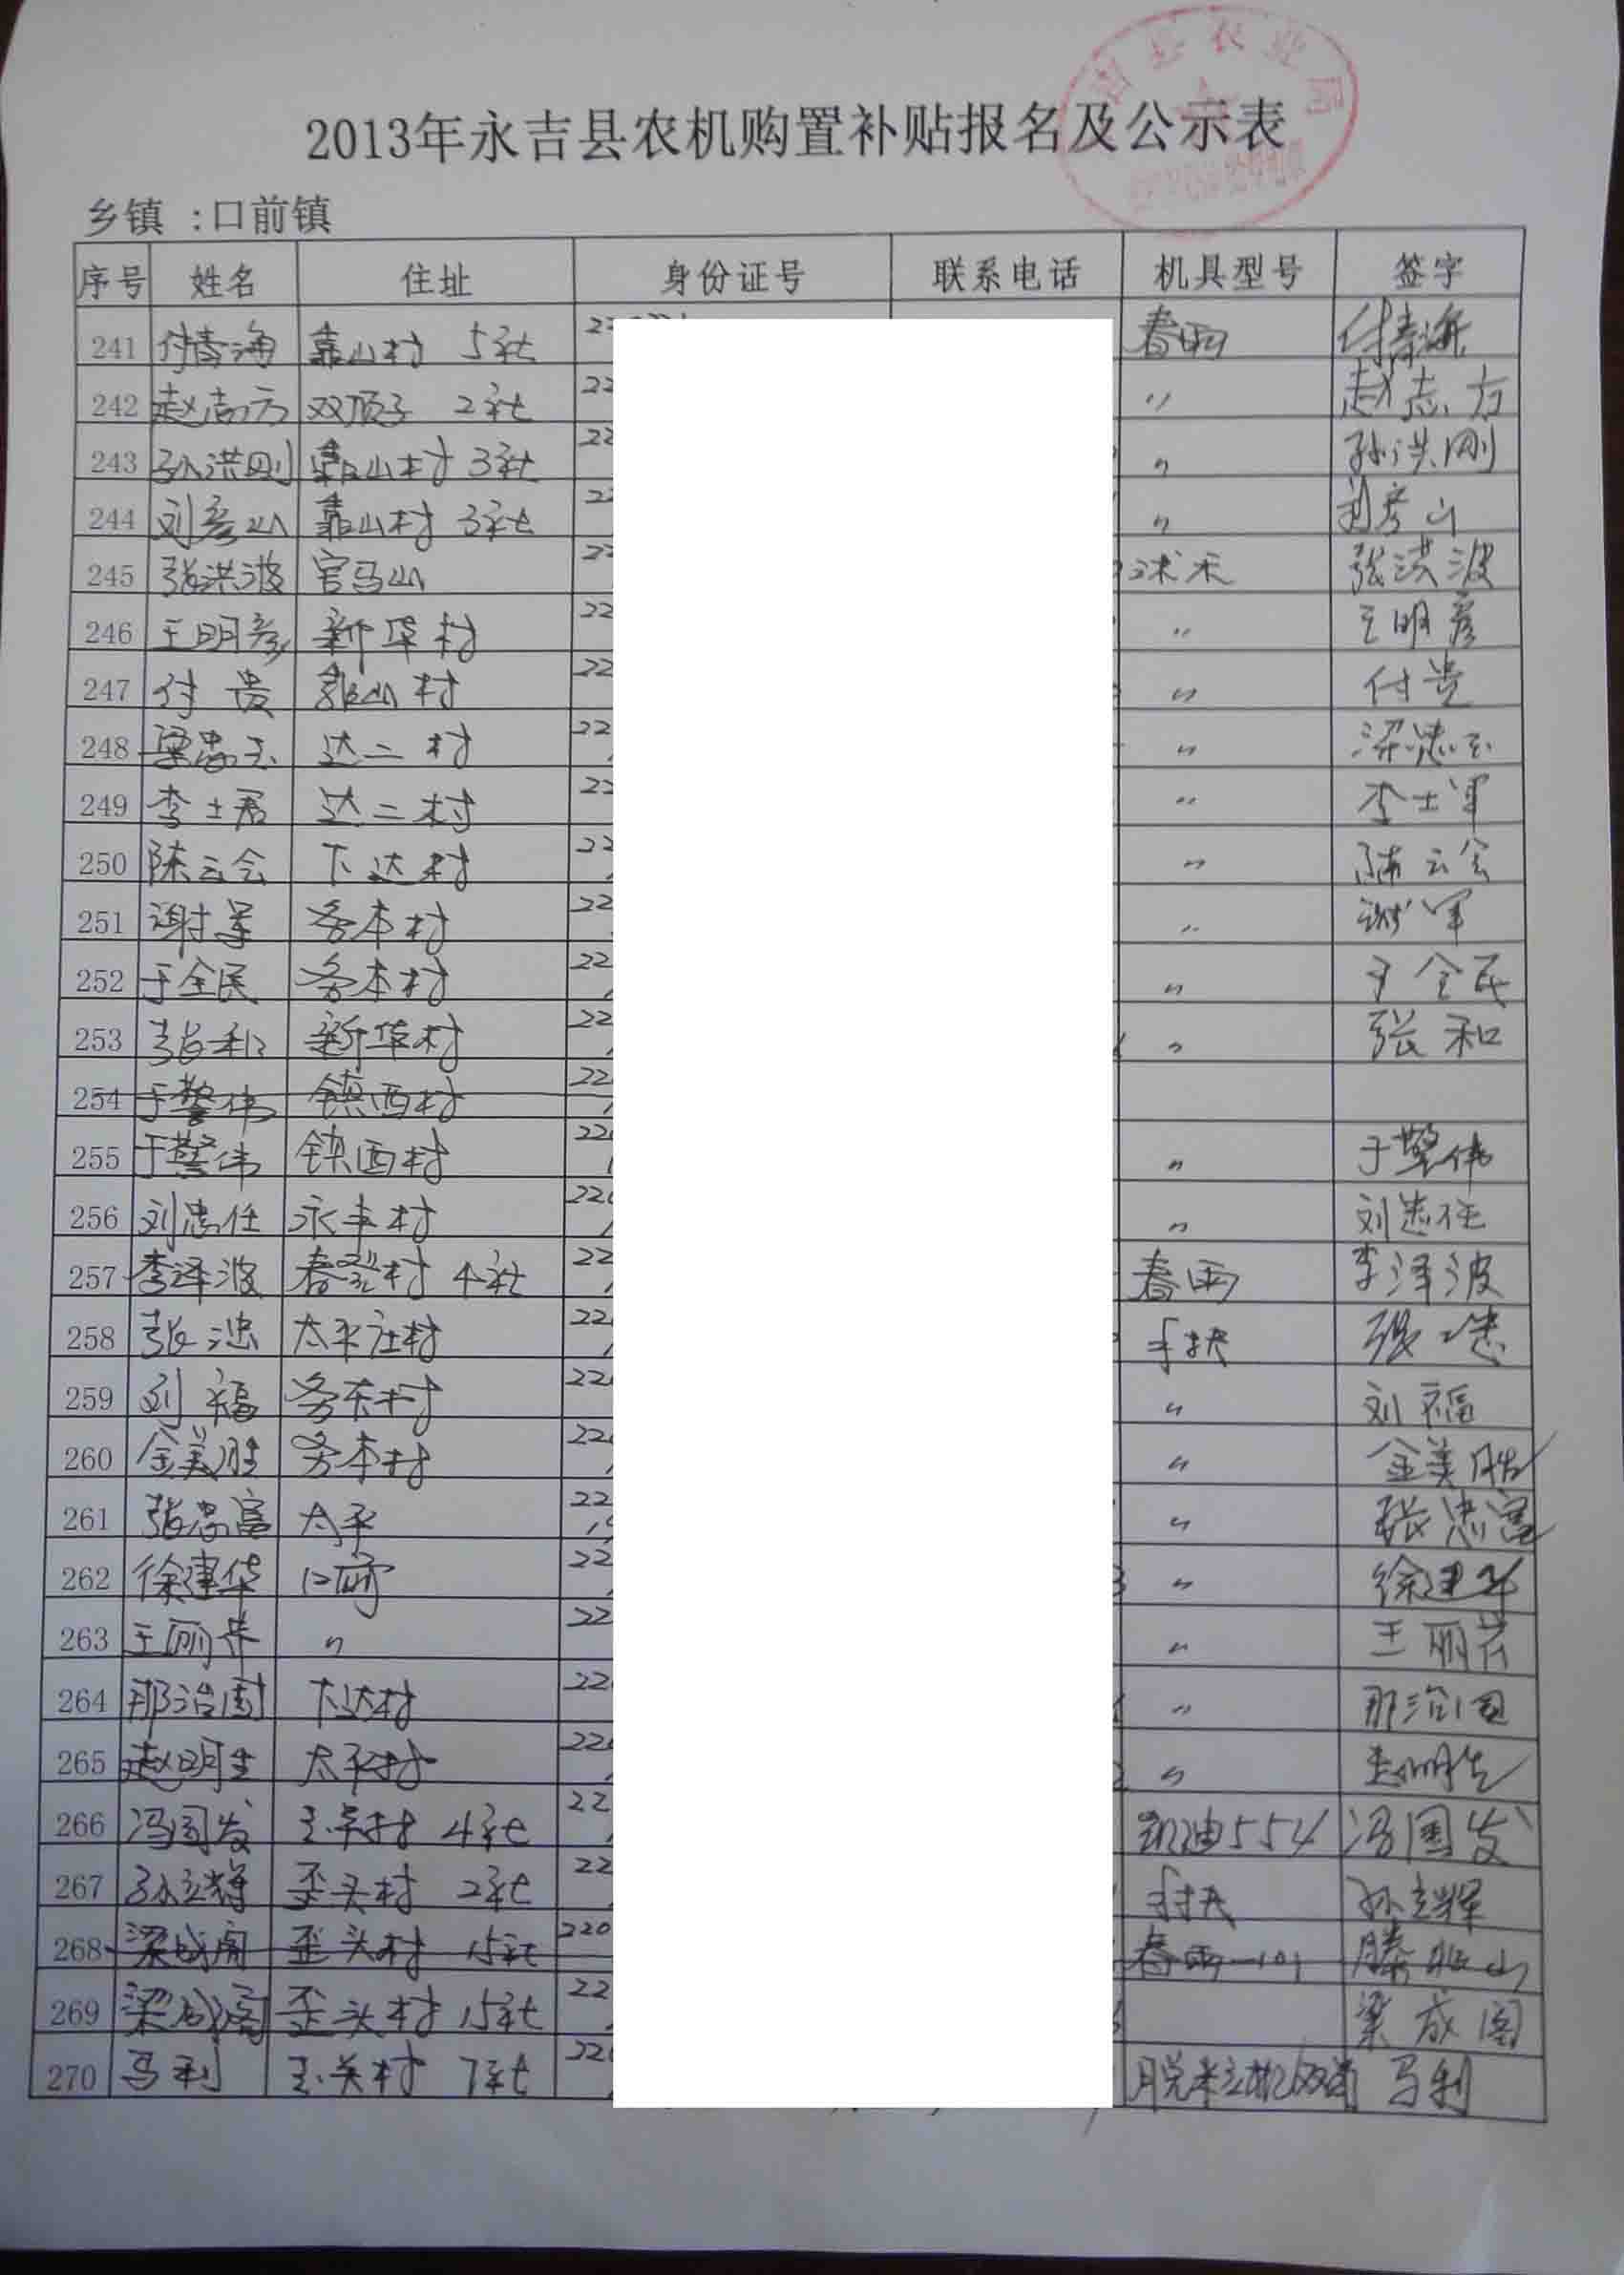 县农业局
2013年永吉县农机购置补贴报名及公示表
乡镇 :口前镇
序号 姓名 住址 身份证号 联系电话 机具型号 签字
241 付春海 靠山村 5社 22 春雨 付春海
242 赵志方 双顶子 2社 22 〃 赵志方
243 孙洪刚 靠山村 3社 22 〃 孙洪刚
244 刘彦山 靠山村 3社 22 〃 刘彦山
245 张洪波 官马山 22 沭禾 张洪波
246 王明彦 新华村 22 〃 王明彦
247 付贵 靠山村 22 〃 付贵
248 梁忠玉 达二村 22 〃 梁忠玉
249 李士君 达二村 22 〃 李士军
250 陈云会 下达村 22 〃 陈云会
251 谢军 务本村 22 〃 谢军
252 于全民 务本村 22 〃 于全民
253 张和 新华村 22 〃 张和
254 于警伟 镇西村 22
255 于警伟 镇西村 22 〃 于警伟
256 刘忠任 永丰村 22 〃 刘忠任
257 李泽波 春登村 4社 22 春雨 李泽波
258 张忠 太平庄村 22 手扶 张忠
259 刘福 务本村 22 〃 刘福
260 金美胜 务本村 22 〃 金美胜
261 张忠富 太平 22 〃 张忠富
262 徐建华 口前 22 〃 徐建华
263 王丽 〃 22 〃 王丽
264 那治国 下达村 22 〃 那治国
265 赵明生 太平村 22 〃 赵明生
266 冯国发 4社 22 凯迪554 冯国发
267 孙立辉 歪头村 2社 22 手扶 孙立辉
268 梁成阁 歪头村 15社 220 春雨101 滕山
269 梁成阁 歪头村 15社 22 梁成阁
270 马利 歪头村 7社 22 脱粒机 马利